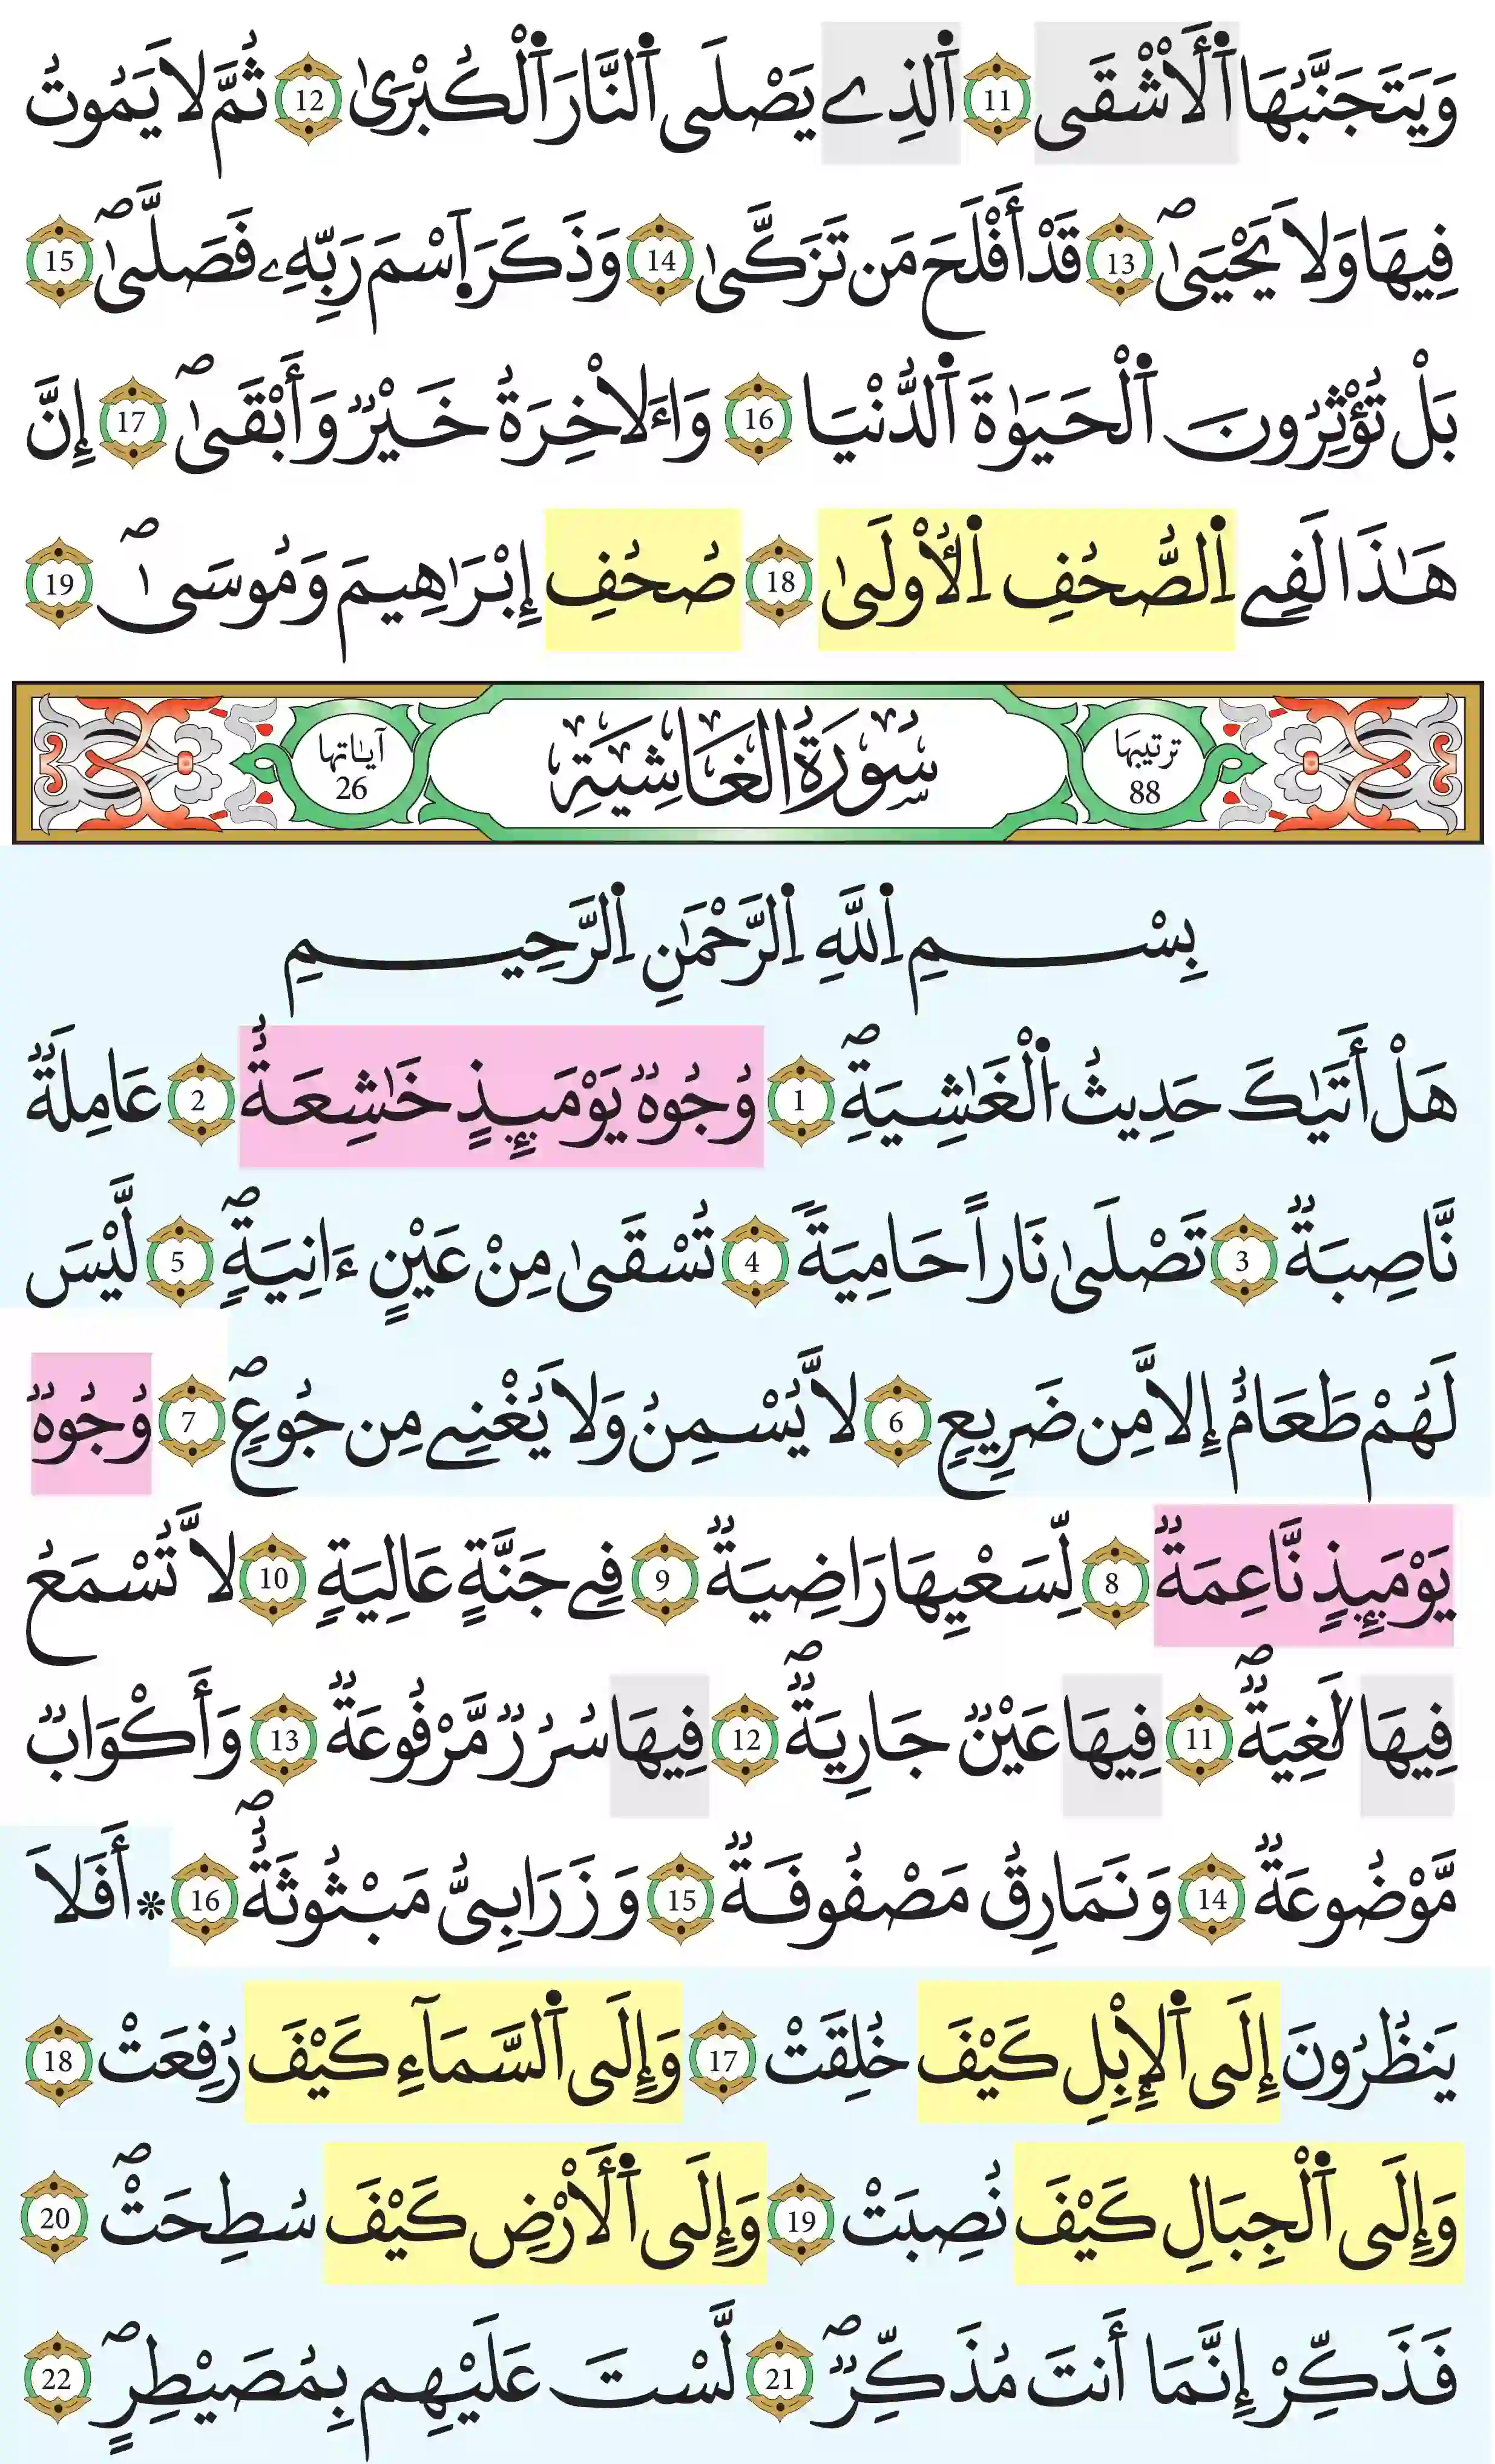 وَيَتَجَنَّبُهَا اَ۬لْأَشْقَى 11 اَ۬لذِے يَصْلَى اَ۬لنَّارَ اَ۬لْكُبْر۪ىٰ 12 ثُمَّ لَا يَمُوتُ
فِيهَا وَلَا يَحْيَىٰۖ 13 قَدْ أَفْلَحَ مَن تَزَكَّىٰ 14 وَذَكَرَ اَ۪سْمَ رَبِّهِۦ فَصَلَّىٰۖ 15
بَلْ تُؤْثِرُونَ اَ۬لْحَيَوٰةَ اَ۬لدُّنْيَا 16 وَالَاخِرَةُ خَيْرٌ وَأَبْقَىٰۖ 17 إِنَّ
هَٰذَا لَفِے اِ۬لصُّحُفِ اِ۬لُاولَىٰ 18 صُحُفِ إِبْرَٰهِيمَ وَمُوسَىٰۖ 19
ترتيبها 88 سُورَةُ الغَاشِيَةِ آياتها 26
بِسْمِ اِ۬للَّهِ اِ۬لرَّحْمَٰنِ اِ۬لرَّحِيمِ
هَلْ أَتَيٰكَ حَدِيثُ اُ۬لْغَٰشِيَةِۖ 1 وُجُوهٌ يَوْمَئِذٍ خَٰشِعَةٌ 2 عَامِلَةٌ
نَّاصِبَةٌ 3 تَصْلَىٰ نَاراً حَامِيَةً 4 تُسْقَىٰ مِنْ عَيْنٍ ءَانِيَةٍۖ 5 لَّيْسَ
لَهُمْ طَعَامٌ إِلَّا مِن ضَرِيعٍ 6 لَّا يُسْمِنُ وَلَا يُغْنِے مِن جُوعٍۖ 7 وُجُوهٌ
يَوْمَئِذٍ نَّاعِمَةٌ 8 لِّسَعْيِهَا رَاضِيَةٌ 9 فِے جَنَّةٍ عَالِيَةٍ 10 لَّا تُسْمَعُ
فِيهَا لَٰغِيَةٌۖ 11 فِيهَا عَيْنٌ جَارِيَةٌۖ 12 فِيهَا سُرُرٌ مَّرْفُوعَةٌ 13 وَأَكْوَابٌ
مَّوْضُوعَةٌ 14 وَنَمَارِقُ مَصْفُوفَةٌ 15 وَزَرَابِىُّ مَبْثُوثَةٌۖ 16 * أَفَلَا
يَنظُرُونَ إِلَى اَ۬لْإِبِلِ كَيْفَ خُلِقَتْ 17 وَإِلَى اَ۬لسَّمَآءِ كَيْفَ رُفِعَتْ 18
وَإِلَى اَ۬لْجِبَالِ كَيْفَ نُصِبَتْ 19 وَإِلَى اَ۬لْأَرْضِ كَيْفَ سُطِحَتْۖ 20
فَذَكِّرْ إِنَّمَا أَنتَ مُذَكِّرٌۖ 21 لَّسْتَ عَلَيْهِم بِمُصَيْطِرٍۖ 22